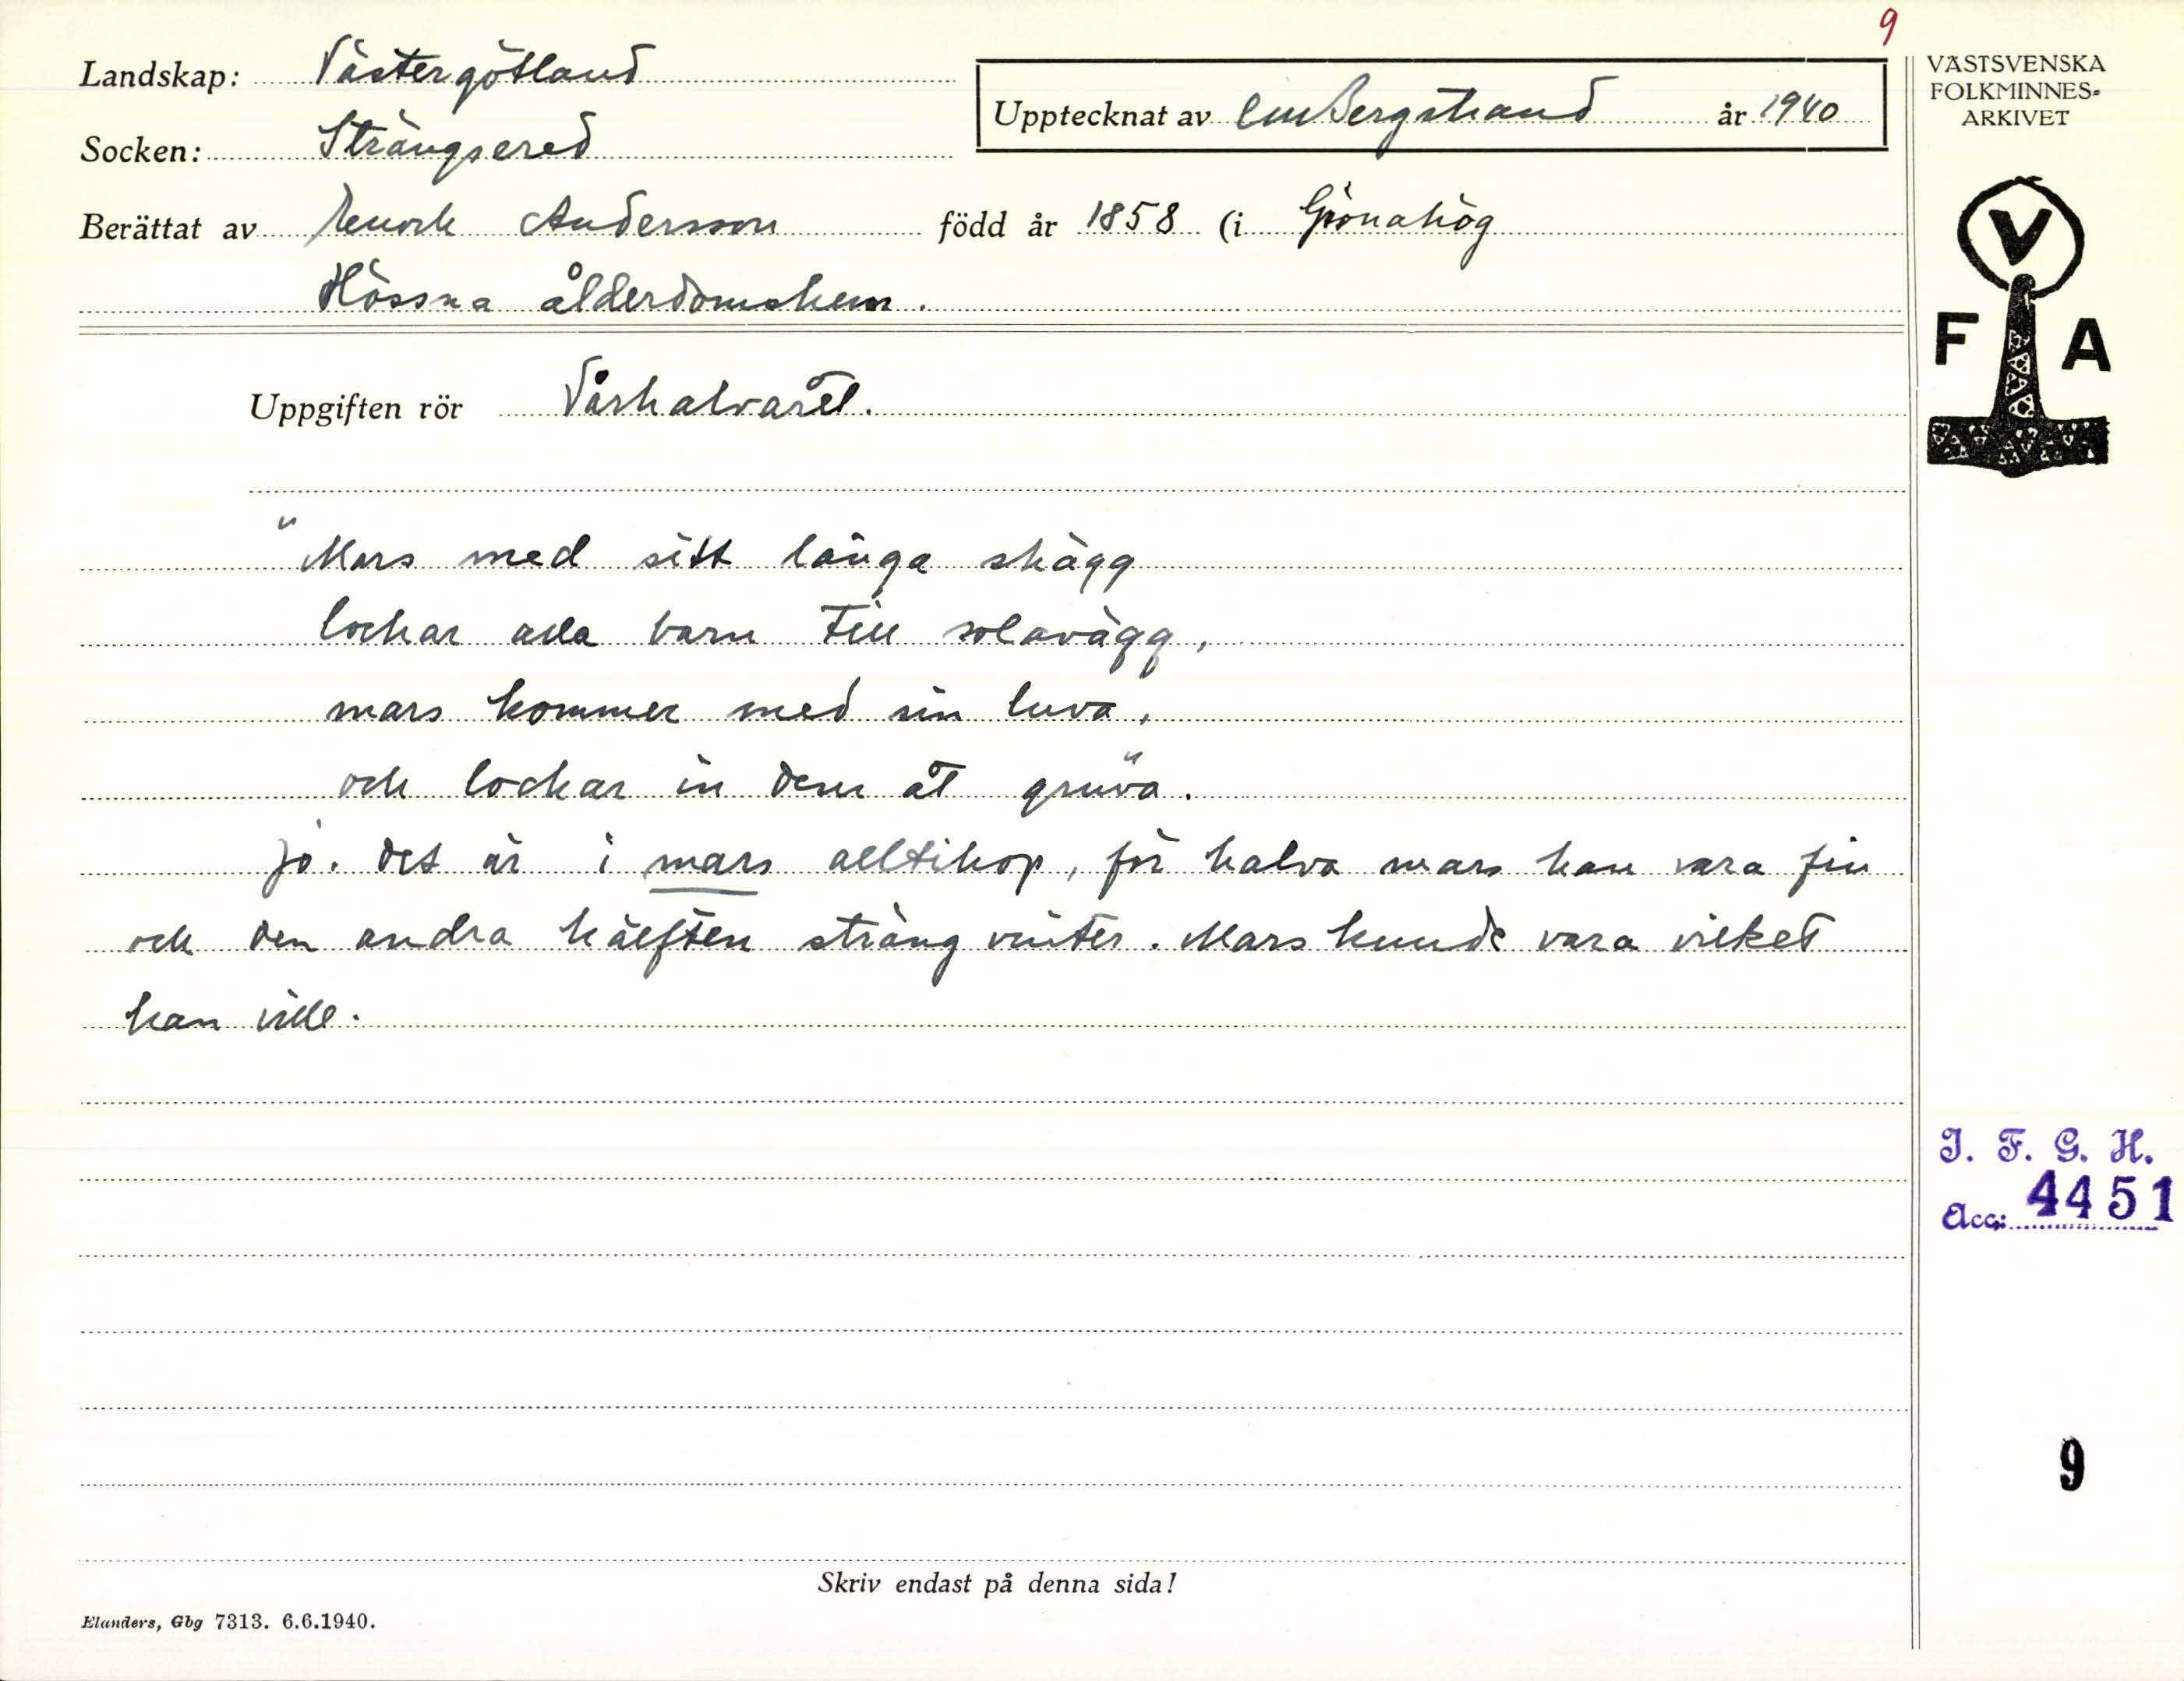 9
Landskap: Västergötland
Upptecknat av CMBergstrand år 1940
Socken: Strängsered
Berättat av Enock Andersson född år 1858 (i Grönahög
Hössna ålderdomshem.
VÄSTSVENSKA
FOLKMINNES-
ARKIVET
V
F A
Uppgiften rör Vårhalvåret.
"Mars med sitt långa skägg
lockar alla barn till solavägg,
mars kommer med sin luva,
och lockar in dem åt gruva".
Jo. Det är i mars alltihop, för halva mars kan vara fin
och den andra hälften sträng vinter. Mars kunde vara vilket
han ville.
I. F. G. H.
Acc: 4451
9
Skriv endast på denna sida!
Elanders, Gbg 7313. 6.6.1940.